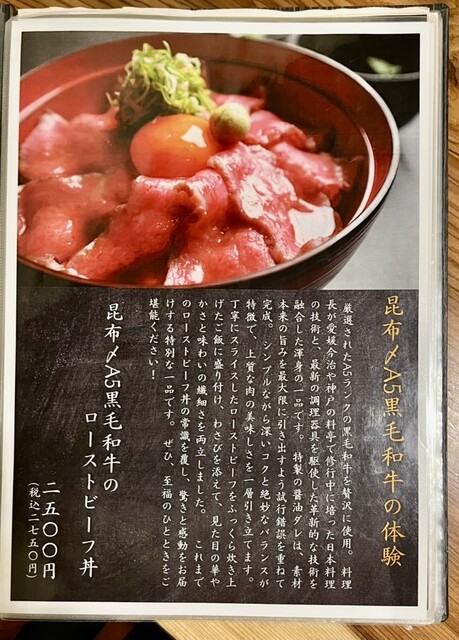 昆布〆A5黒毛和牛の体験
厳選されたA5ランクの黒毛和牛を贅沢に使用。料理
長が愛媛今治や神戸の料亭で修行中に培った日本料理
の技術と、最新の調理器具を駆使した革新的な技術を
融合した渾身の一品です。特製の醤油ダレは、素材
本来の旨みを最大限に引き出すよう試行錯誤を重ねて
完成。シンプルながら深いコクと絶妙なバランスが
特徴で、上質な肉の美味しさを一層引き立てます。
丁寧にスライスしたローストビーフをふっくら炊き上
げたご飯に盛り付け、わさびを添えて、見た目の華や
かさと味わいの繊細さを両立しました。これまで
のローストビーフ丼の常識を覆し、驚きと感動をお届
けする特別な一品です。ぜひ、至福のひとときをご
堪能ください！
昆布〆A5黒毛和牛の
ローストビーフ丼
二五〇〇円
（税込二七五〇円）